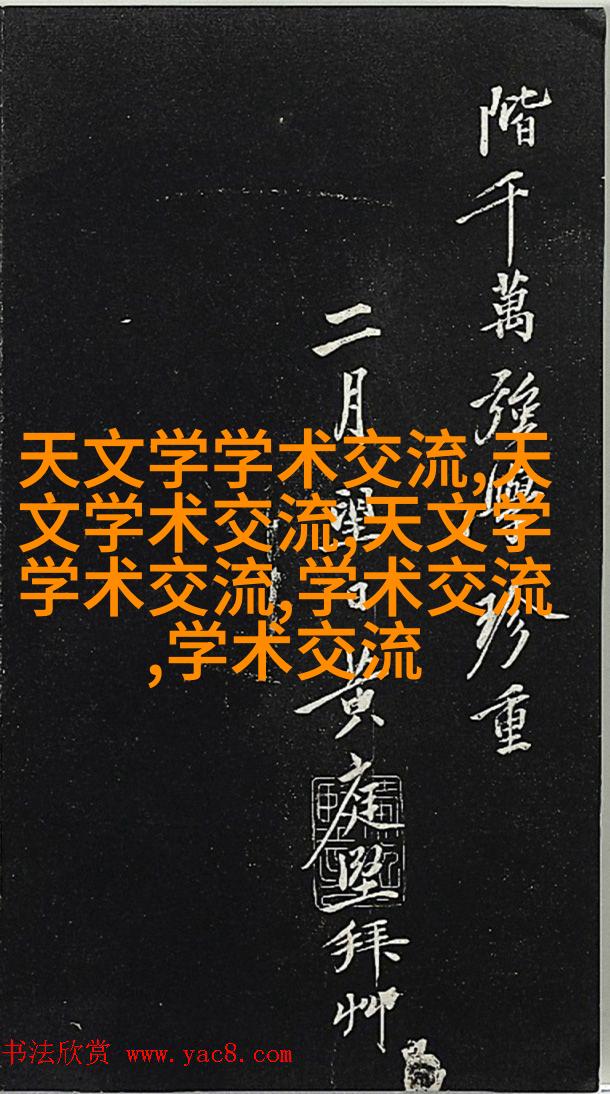 階千萬強學珍重
二月望日黄庭堅拜艸
天文学学术交流,天
文学术交流,天文学
学术交流,学术交流
,学术交流
书法欣赏 www.yac8.com